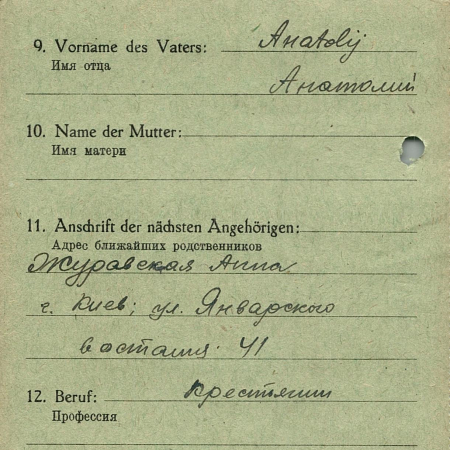 9. Vorname des Vaters: Anatolij
Имя отца
Анатолий
10. Name der Mutter:
Имя матери
11. Anschrift der nächsten Angehörigen:
Адрес ближайших родственников
Журавская Анна
г. Киев; ул. Январского
востания. 41
12. Beruf: крестянин
Профессия